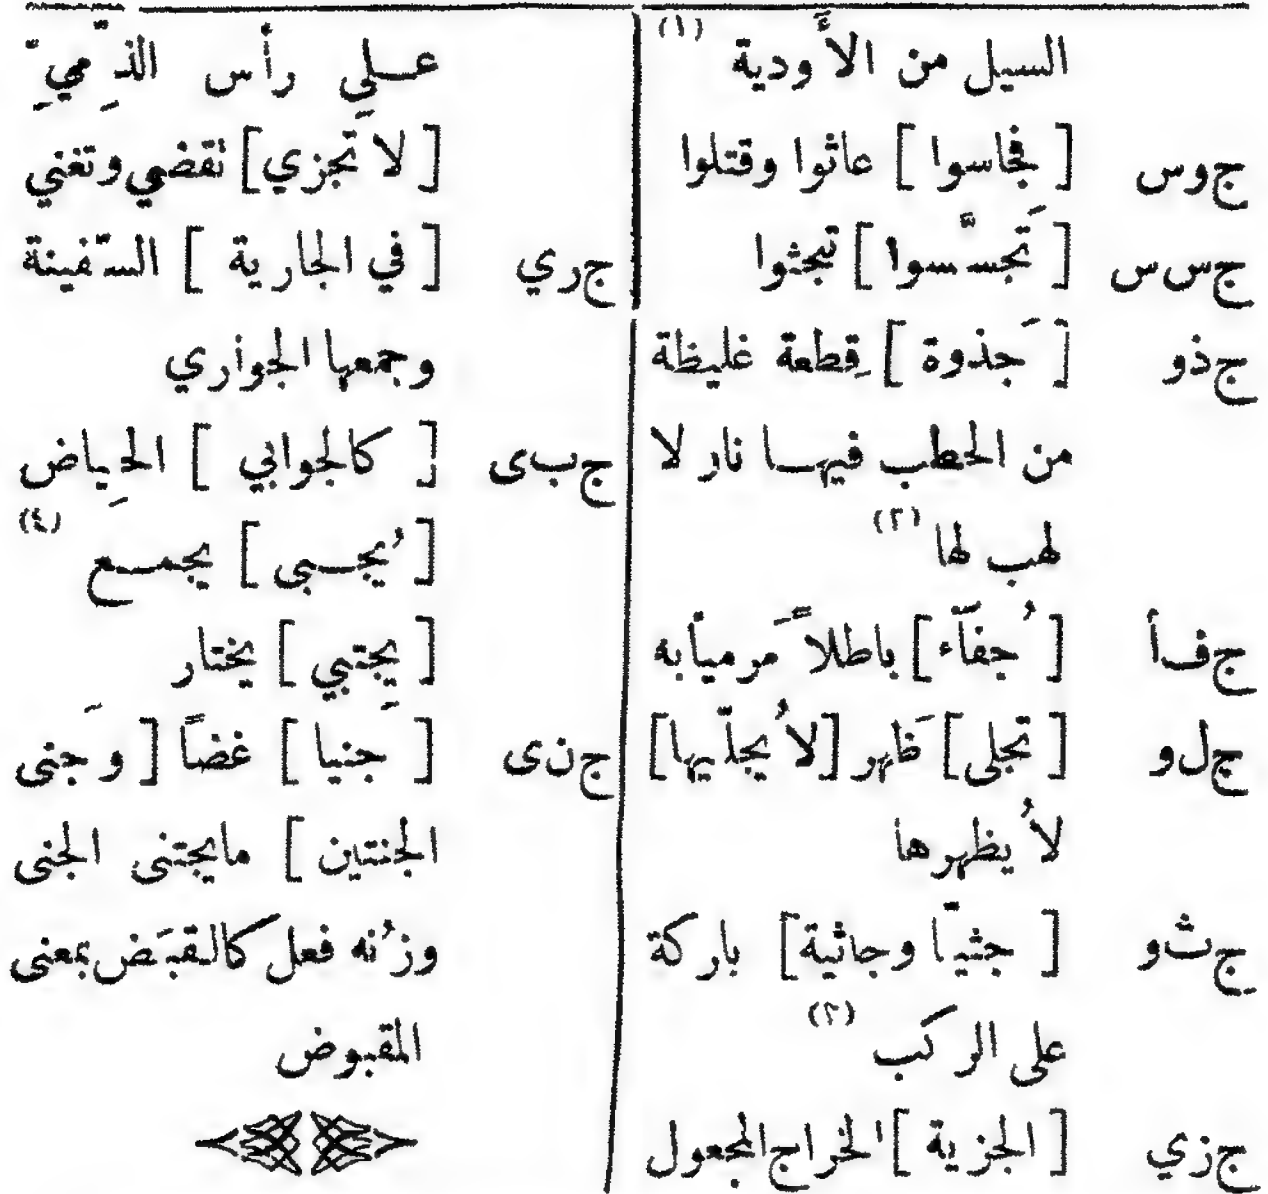 السيل من الأَودية (١)
ج‌وس [ فجاسوا ] عاثوا وقتلوا
ج‌س‌س [ تَجسَّسوا ] تبحثوا
ج‌ذو [ جَذوة ] قِطعة غليظة
من الحطب فيهـا نار لا
لهب لها (٢)
ج‌ف‌أ [ جُفآء ] باطلاً مَرمياً به
ج‌ل‌و [ تجلى ] ظَهر [لا يُجلّيها]
لا يُظهرها
ج‌ث‌و [ جثيّا وجاثية ] باركة
على الركب (٣)
ج‌زي [ الجزية ] الخراج المجعول
عـلى رأس الذِّمِيّ
[ لا تَجزي ] تقضي وتغني
ج‌ري [ في الجارية ] السّفينة
وجمعها الجواري
ج‌ب‌ى [ كالجوابي ] الحِياض
[ يُجـبى ] يجمـع (٤)
[ يجتبي ] يختار
ج‌ن‌ى [ جَنيا ] غضاً [ وجَنى
الجنتين ] مايجتنى الجنى
وزُنه فعل كالقبَض بمعنى
المقبوض